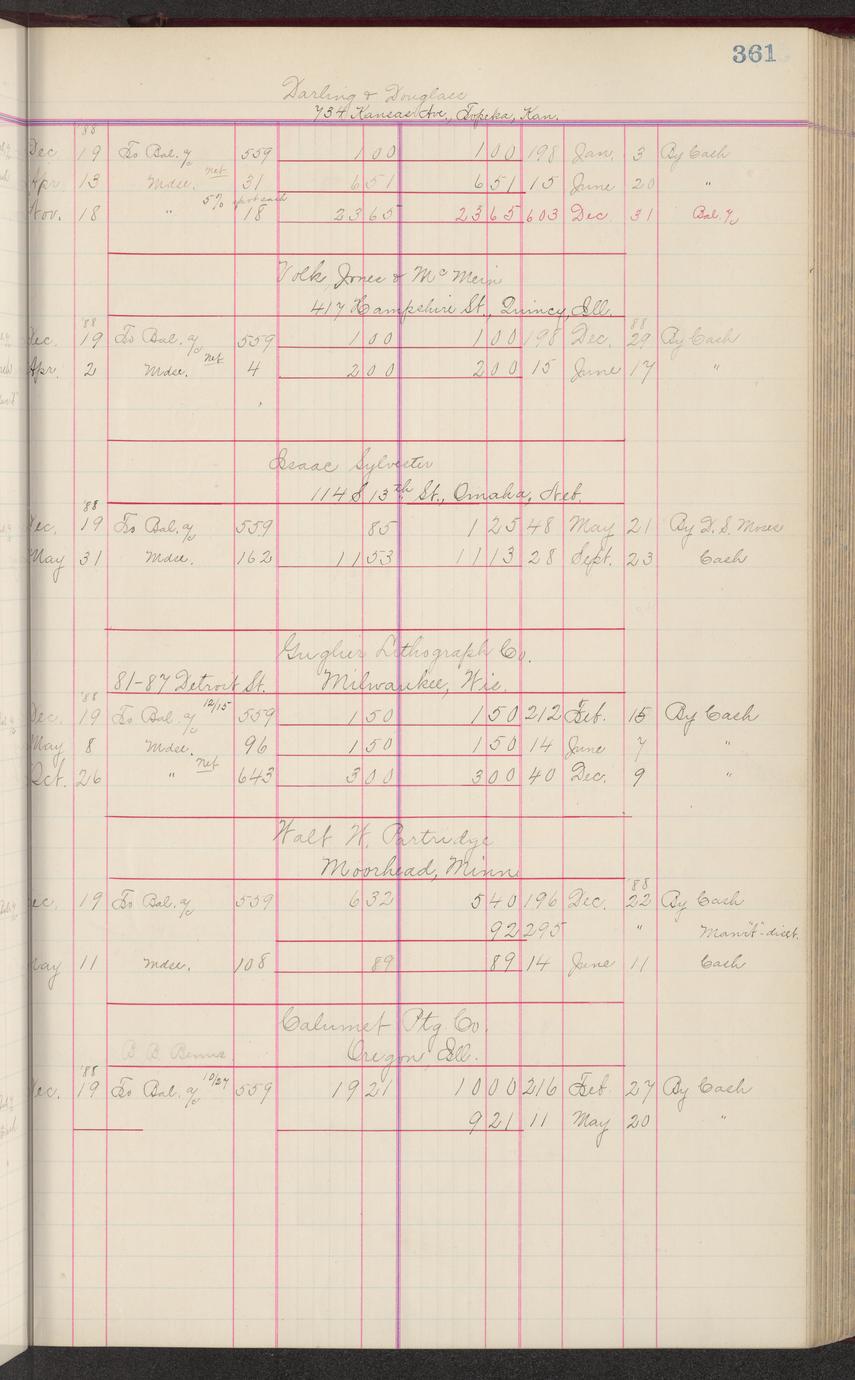 361
Darling & Douglass
734 Kansas Ave., Topeka, Kan.
'88
Dec. 19 To Bal. % 559 1 00 1 00 198 Jan. 3 By Cash
Apr. 13 Mdse. net 31 6 51 6 51 15 June 20 "
Nov. 18 " 5% spot cash 18 23 65 23 65 603 Dec 31 Bal. %
Volk, Jones & McMein
417 Hampshire St., Quincy, Ill.
'88 88
Dec. 19 To Bal. % 559 1 00 1 00 198 Dec. 29 By Cash
Apr. 2 Mdse. net 4 2 00 2 00 15 June 17 "
Isaac Sylvester
114 S 13th St., Omaha, Neb.
'88
Dec. 19 To Bal. % 559 85 1 25 48 May 21 By D. S. Moses
May 31 Mdse. 162 11 53 11 13 28 Sept. 23 Cash
Gugler Lithograph Co.
81-87 Detroit St. Milwaukee, Wis.
'88
Dec. 19 To Bal. % 12/15 559 1 50 1 50 212 Feb. 15 By Cash
May 8 Mdse. 96 1 50 1 50 14 June 7 "
Oct. 26 " net 643 3 00 3 00 40 Dec. 9 "
Walt W. Partridge
Moorhead, Minn
'88
Dec. 19 To Bal. % 559 6 32 5 40 196 Dec. 22 By Cash
92 295 " Man'f't-disct.
May 11 Mdse. 108 89 89 14 June 11 Cash
Calumet Ptg Co.
B. B. Bemis Oregon, Ill.
'88
Dec. 19 To Bal. % 10/27 559 19 21 10 00 216 Feb. 27 By Cash
9 21 11 May 20 "